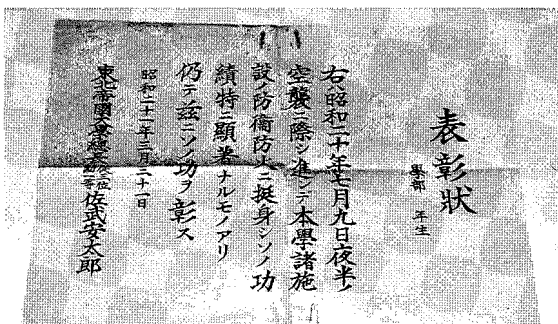 表彰状
學部 年生
右ハ昭和二十年七月九日夜半ノ
空襲ニ際シ進ンデ本學諸施
設ノ防衛防火ニ挺身シソノ功
績特ニ顯著ナルモノアリ
仍テ茲ニソノ功ヲ彰ス
昭和二十一年三月三十一日
東北帝國大學總長 佐武安太郎